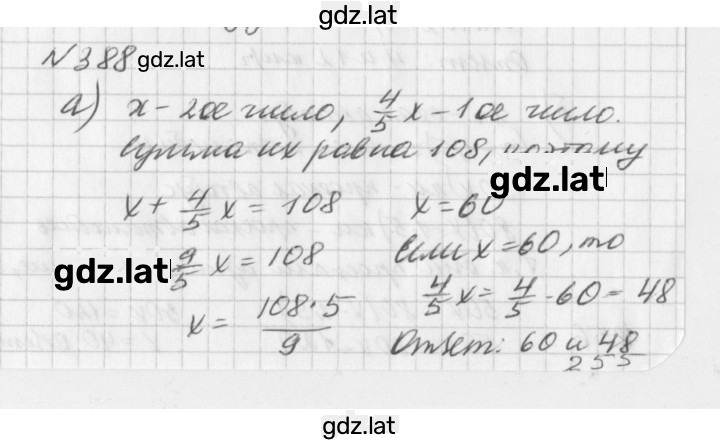 gdz.lat
N 388 gdz.lat
а) x - 2ое число, 4/5 x - 1ое число.
Сумма их равна 108, поэтому
gdz.lat
x + 4/5 x = 108
x = 60
gdz.lat 9/5 x = 108
если x = 60, то
x = 108·5/9
4/5 x = 4/5 · 60 = 48
Ответ: 60 и 48
255
gdz.lat